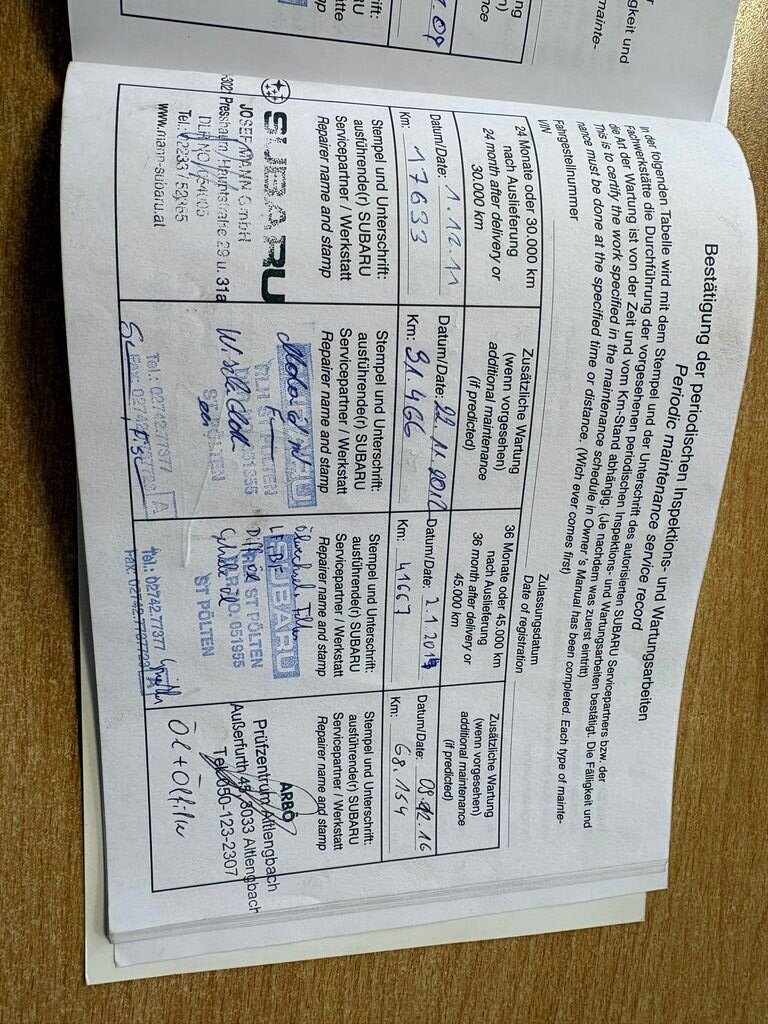 Bestätigung der periodischen Inspektions- und Wartungsarbeiten
Periodic maintenance service record
In der folgenden Tabelle wird mit dem Stempel und der Unterschrift des autorisierten SUBARU Servicepartners bzw. der
Fachwerkstätte die Durchführung der vorgesehenen periodischen Inspektions- und Wartungsarbeiten bestätigt. Die Fälligkeit und
die Art der Wartung ist von der Zeit und vom Km-Stand abhängig. (Je nachdem was zuerst eintritt)
This is to certify the work specified in the maintenance schedule in Owner's Manual has been completed. Each type of mainte-
nance must be done at the specified time or distance. (Wich ever comes first)
Fahrgestellnummer
VIN
Zulassungsdatum
Date of registration
24 Monate oder 30.000 km
nach Auslieferung
24 month after delivery or
30.000 km
Datum/Date: 1.12.11
Km: 17633
Stempel und Unterschrift:
ausführende(r) SUBARU
Servicepartner / Werkstatt
Repairer name and stamp
SUBARU
JOSEF MANN GmbH
Pressbaum, Hauptstraße 29 u. 31a
Tel. 02233/52365
www.mann-subaru.at
Zusätzliche Wartung
(wenn vorgesehen)
additional maintenance
(if predicted)
Datum/Date: 22.11.2012
Km: 31.466
Stempel und Unterschrift:
ausführende(r) SUBARU
Servicepartner / Werkstatt
Repairer name and stamp
ST. PÖLTEN
051955
ST PÖLTEN
Tel.: 02742.77377
36 Monate oder 45.000 km
nach Auslieferung
36 month after delivery or
45.000 km
Datum/Date: 2.1.2014
Km: 41667
Stempel und Unterschrift:
ausführende(r) SUBARU
Servicepartner / Werkstatt
Repairer name and stamp
SUBARU
ST PÖLTEN
NO. 051955
ST PÖLTEN
Tel.: 02742.77377
Zusätzliche Wartung
(wenn vorgesehen)
additional maintenance
(if predicted)
Datum/Date: 08.02.16
Km: 68.154
Stempel und Unterschrift:
ausführende(r) SUBARU
Servicepartner / Werkstatt
Repairer name and stamp
ARBÖ
Prüfzentrum Altlengbach
Außerfurth 45, 3033 Altlengbach
Tel. 050-123-2307
Öl + Ölfilter